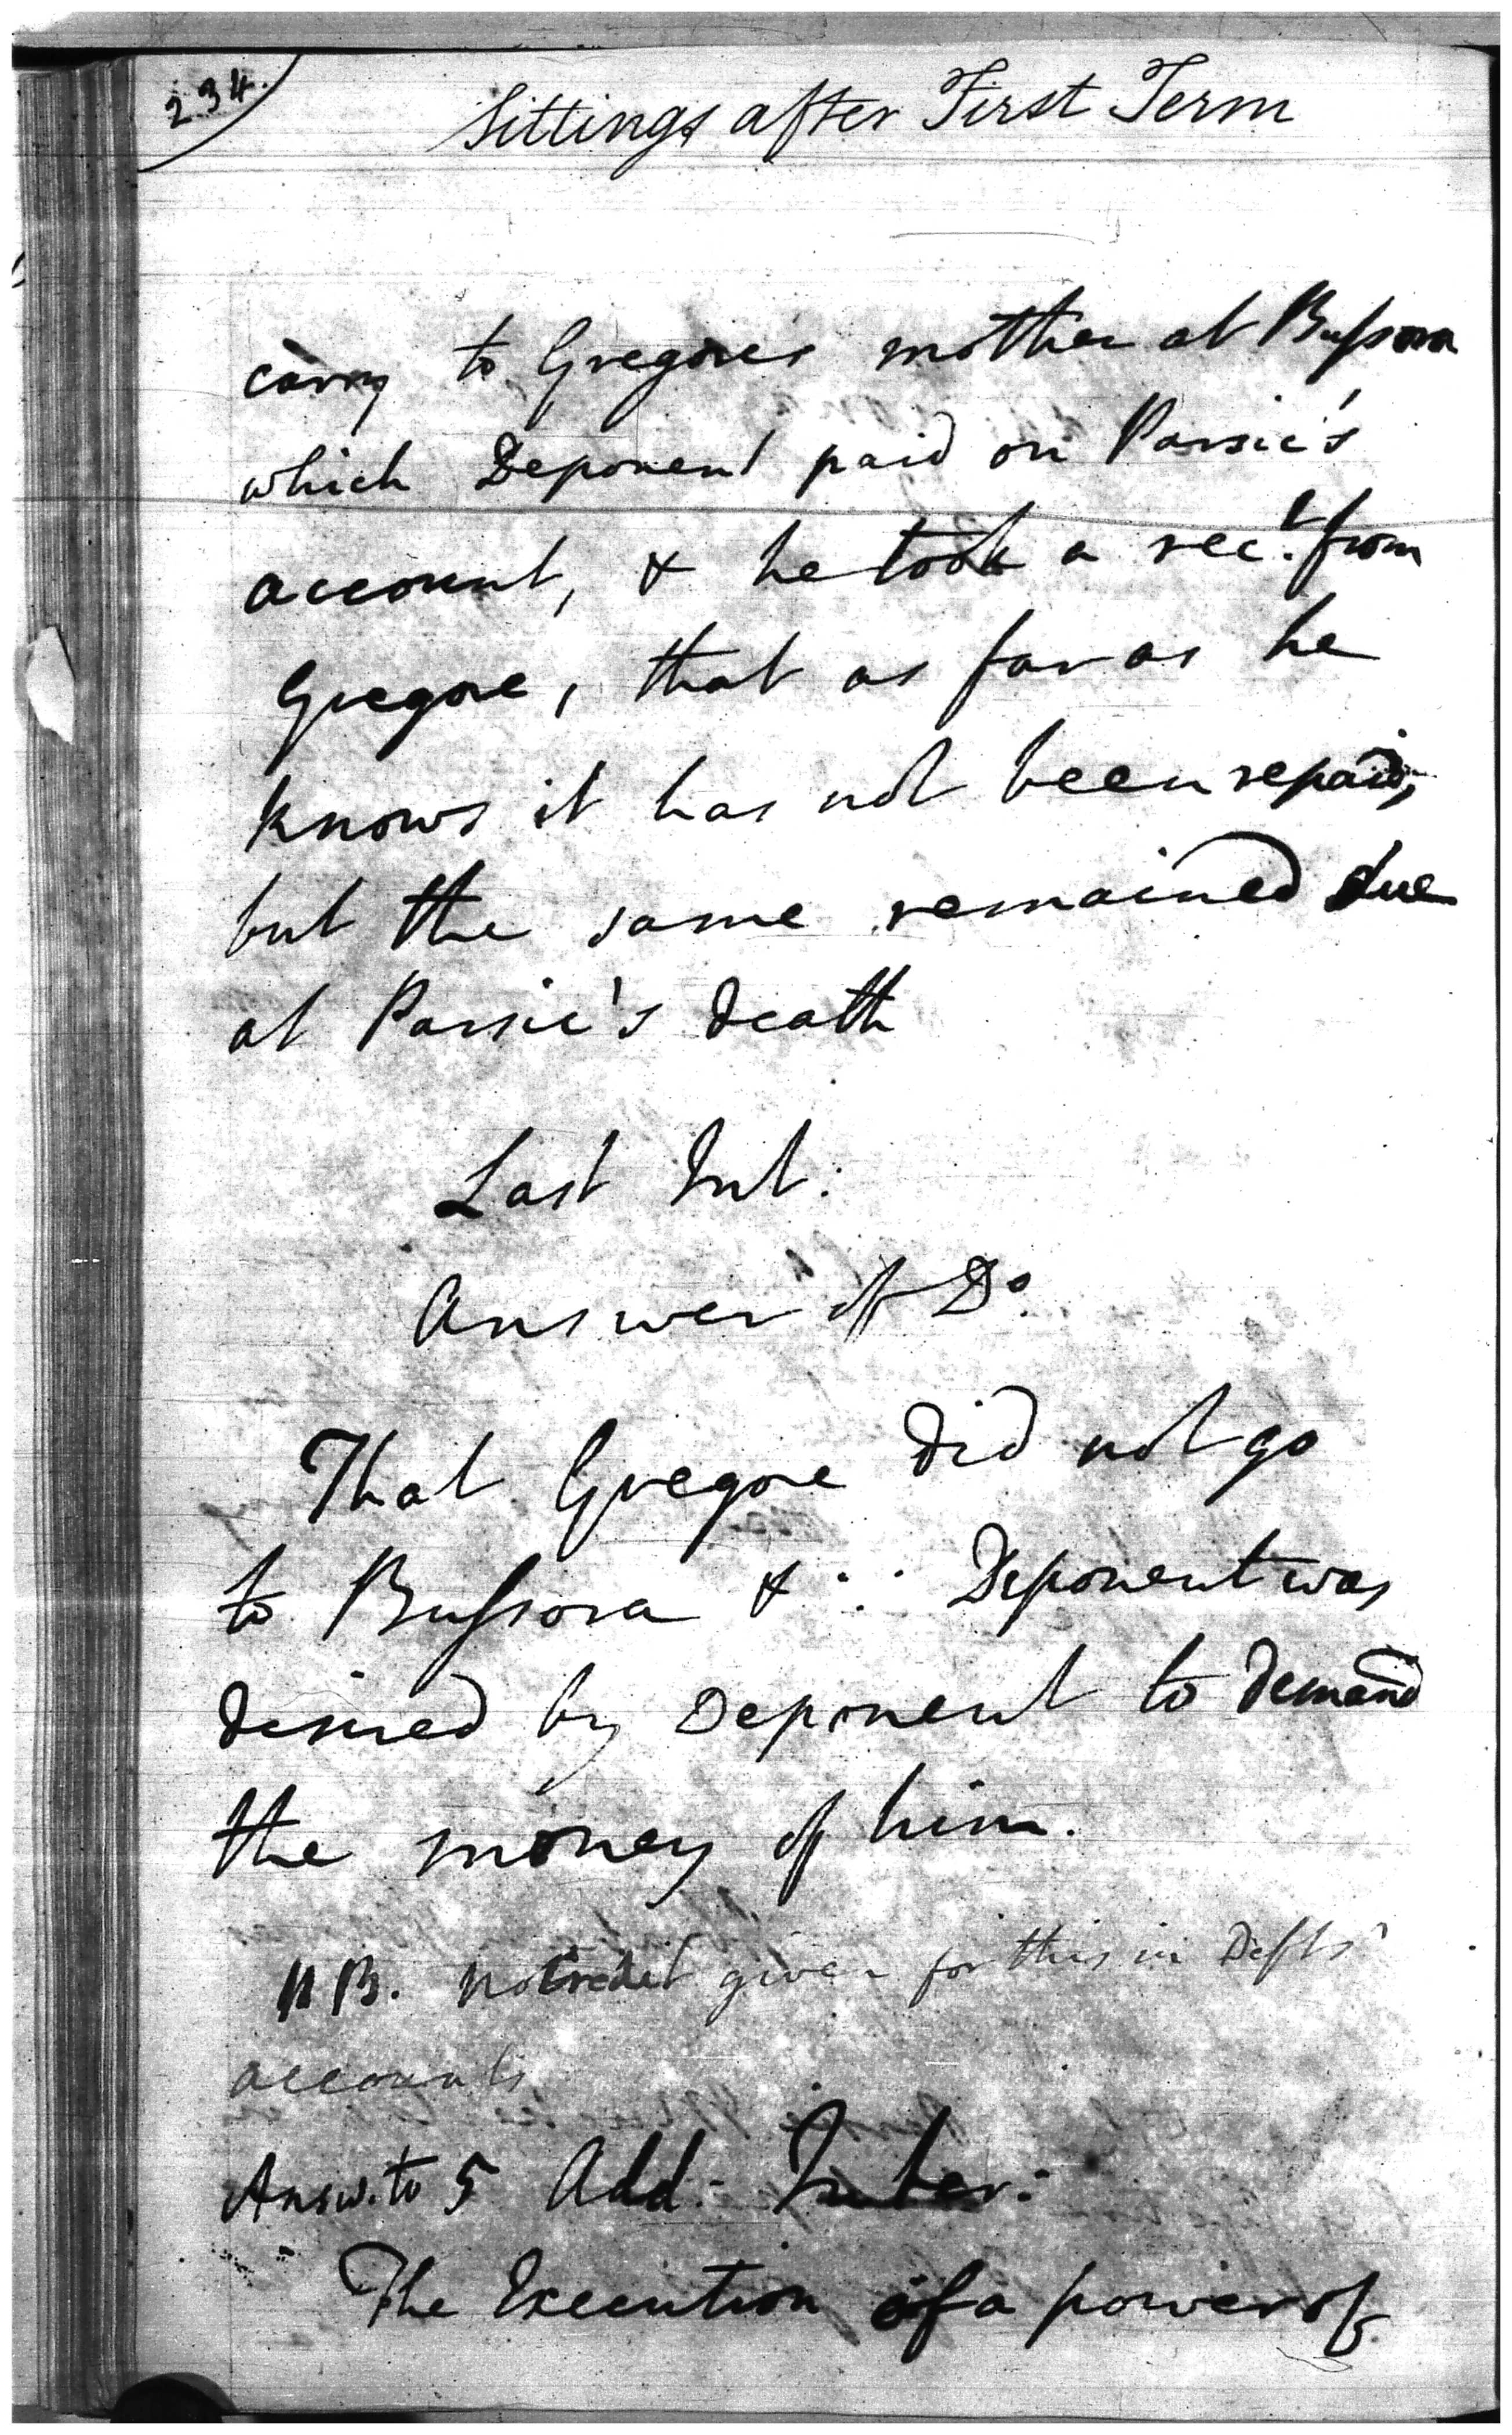 234.
Sittings after First Term
carry to Gregore's mother at Bussora
which Deponent paid on Parsic's
account, & he took a rect. from
Gregore, that as far as he
knows it has not been repaid,
but the same remained due
at Parsic's death
Last Int:
Answer of Do.
That Gregore did not go
to Bussora & ∴ Deponent was
desired by Deponent to demand
the money of him.
N.B. No Credit given for this in Defts'
accounts
Answ. to 5 Add: Inter:
The Execution of a power of